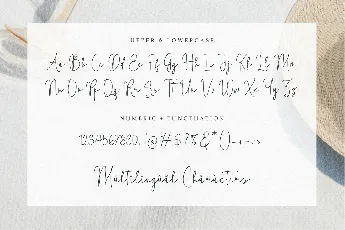 UPPER & LOWERCASE
Aa Bb Cc Dd Ee Ff Gg Hh Ii Jj Kk Ll Mm
Nn Oo Pp Qq Rr Ss Tt Uu Vv Ww Xx Yy Zz
NUMERIC & PUNCTUATION
1234567890
Multilingual Characters